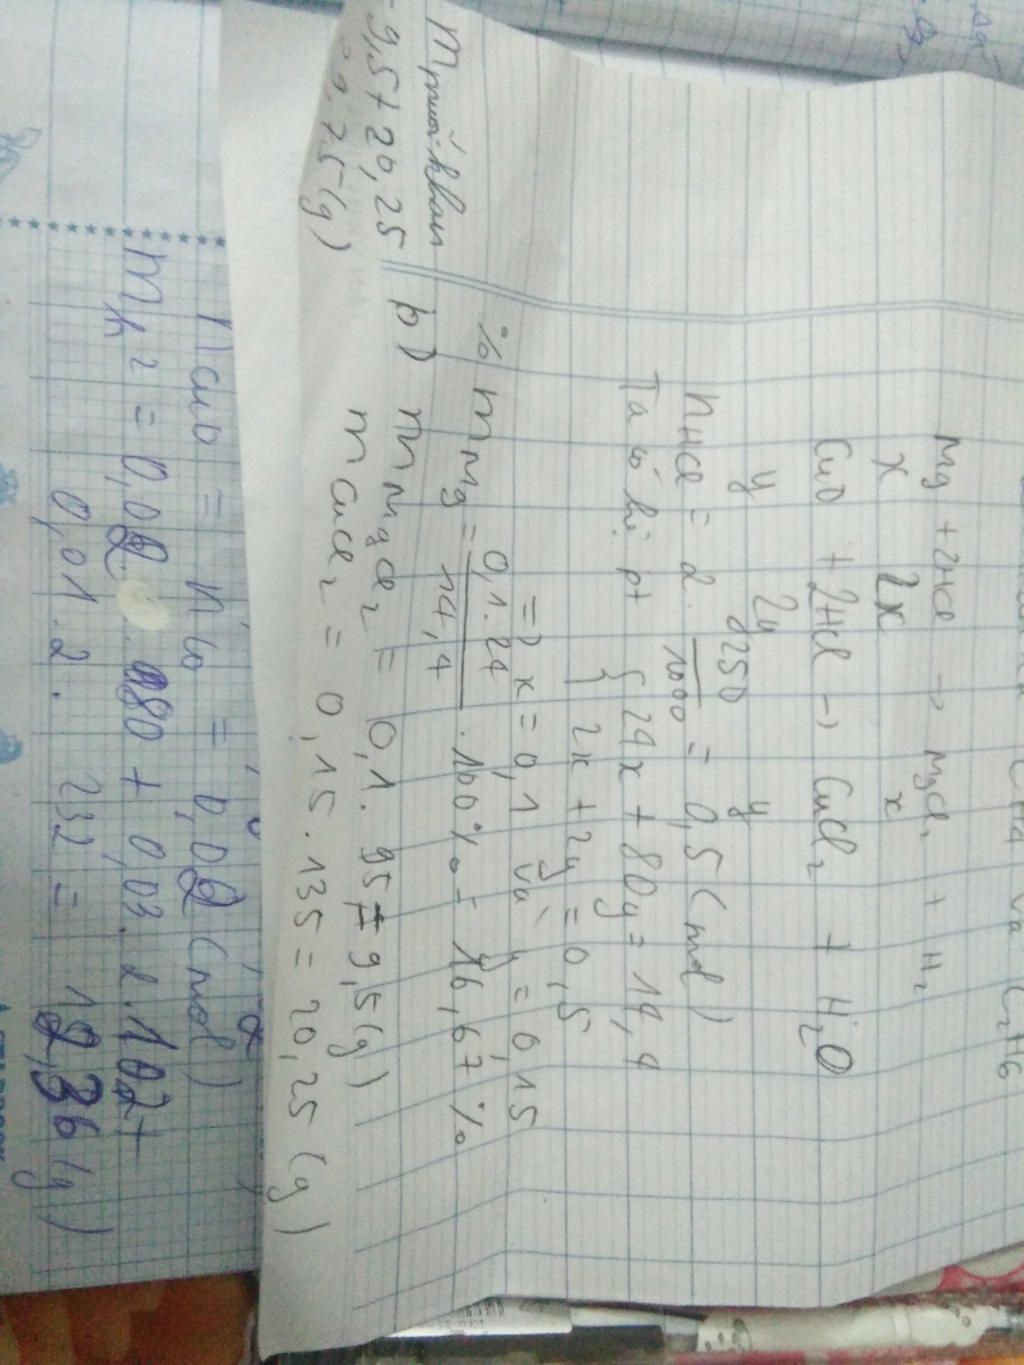 CH4 và C2H6
Mg + 2HCl → MgCl2 + H2
x 2x x
CuO + 2HCl → CuCl2 + H2O
y 2y y
nHCl = 2. 250/1000 = 0,5 (mol)
Ta có hệ pt { 24x + 80y = 14,4
{ 2x + 2y = 0,5
=> x = 0,1 và y = 0,15
% mMg = 0,1.24/14,4 .100% = 16,67%
b) mMgCl2 = 0,1. 95 = 9,5 (g)
mCuCl2 = 0,15.135 = 20,25 (g)
m muối khan
= 9,5 + 20,25
75 (g)
= 0,02 (mol)
mh2 = 0,02 . 80 + 0,03.2.102 +
0,01.2. 232 = 12,36 (g)